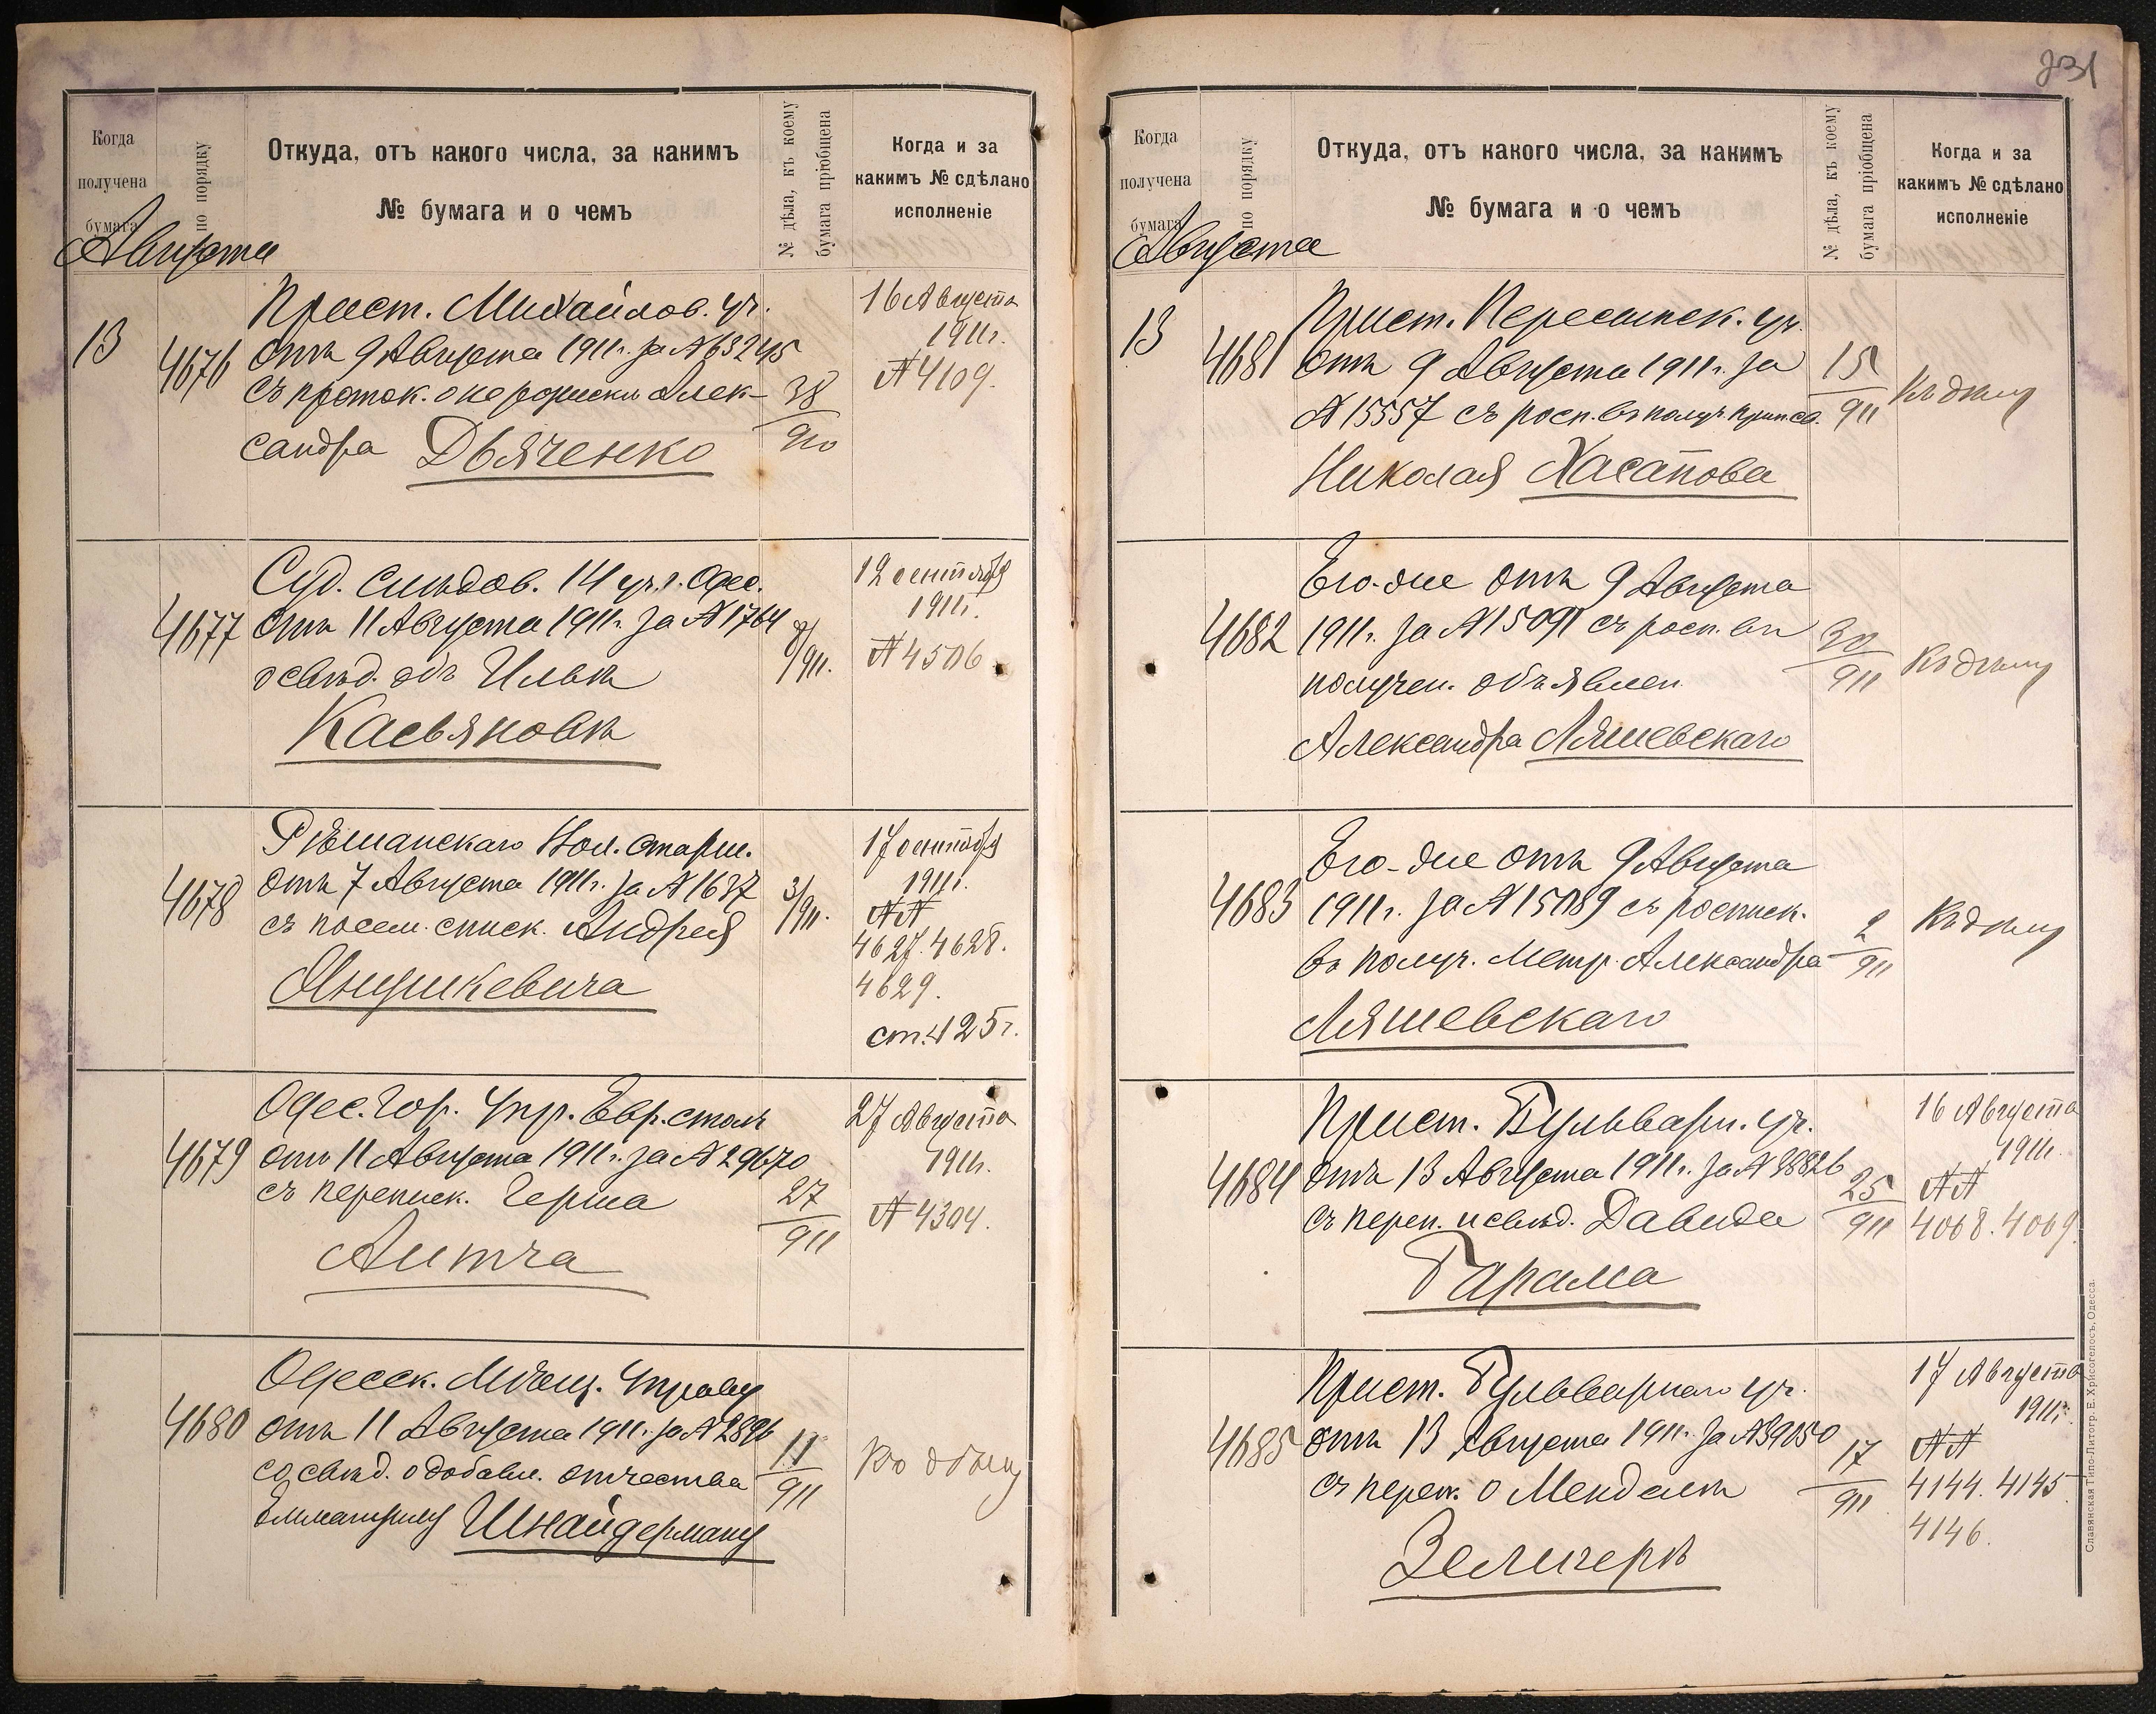 231
Когда получена бумага
по порядку
Откуда, отъ какого числа, за какимъ
№ бумага и о чемъ
№ дѣла, къ коему бумага пріобщена
Когда и за
какимъ № сдѣлано
исполненіе
Августа
13
4676
Прист. Михайлов. уч.
отъ 9 Августа 1911 г. за № 63245
съ проток. о не розыскѣ Алек-
сандра Дьяченко
38/910
16 Августа
1911 г.
№ 4109.
4677
Суд. Слѣдов. 14 уч. г. Одес.
отъ 11 Августа 1911 г. за № 1764
о свѣд. объ Ильѣ
Касьяновѣ
8/911.
12 сентября
1911 г.
№ 4506.
4678
Вол. Старш.
отъ 7 Августа 1911 г. за № 1637
съ посем. списк. Андрея
Янушкевича
3/911.
17 сентября
1911 г.
№№
4627. 4628.
4629.
ст. 425 г.
4679
Одес. Гор. Упр. Евр. столъ
отъ 11 Августа 1911 г. за № 29670
съ переписк. Герша
Литча
27/911
27 Августа
1911 г.
№ 4304.
4680
Одесск. Мѣщ. Управы
отъ 11 Августа 1911 г. за № 2896
со свѣд. о добавл. отчества
Еммануилу Шнайдерману
11/911
Къ дѣлу
Когда получена бумага
по порядку
Откуда, отъ какого числа, за какимъ
№ бумага и о чемъ
№ дѣла, къ коему бумага пріобщена
Когда и за
какимъ № сдѣлано
исполненіе
Августа
13
4681
Прист. Пересыпск. уч.
отъ 9 Августа 1911 г. за
№ 15557 съ росп. въ получ.
Николая Хасапова
15/911
Къ дѣлу
4682
Его-же отъ 9 Августа
1911 г. за № 15091 съ росп. въ
получен. объявлен.
Александра Ляшевскаго
30/911
Къ дѣлу
4683
Его-же отъ 9 Августа
1911 г. за № 15089 съ росписк.
въ получ. Метр. Александра
Ляшевскаго
2/911
Къ дѣлу
4684
Прист. Бульварн. уч.
отъ 13 Августа 1911 г. за № 38826
съ переп. и свѣд. Давида
Барама
25/911
16 Августа
1911 г.
№№
4068. 4069.
4685
Прист. Бульварнаго уч.
отъ 13 Августа 1911 г. за № 39050
съ переп. о Менделѣ
Зелигерѣ
17/911
17 Августа
1911 г.
№№
4144. 4145
4146.
Славянская Типо-Литогр. Е. Хрисогелосъ, Одесса.